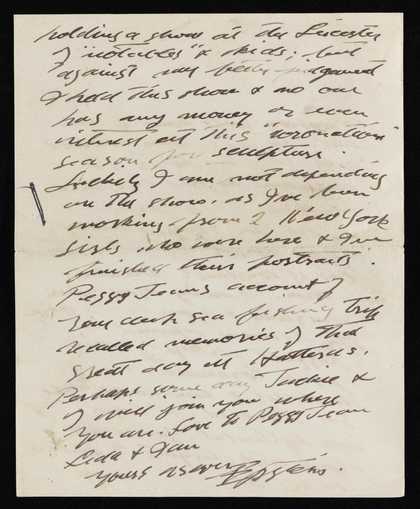 holding a show at the Leicester
of "notables" & kids; but
against my better judgement
I hold this show & no one
has any money or even
interest at this "coronation"
season for sculpture.
Luckily I am not depending
on the show, as I've been
working from 2 New York
girls who were here & I've
finished their portraits.
Peggy Jean's account of
your deep sea fishing trip
recalled memories of that
great day at Hatteras.
Perhaps some day Jackie &
I will join you where
you are. Love to Peggy Jean
Leda & Ian
yours as ever Epstein.